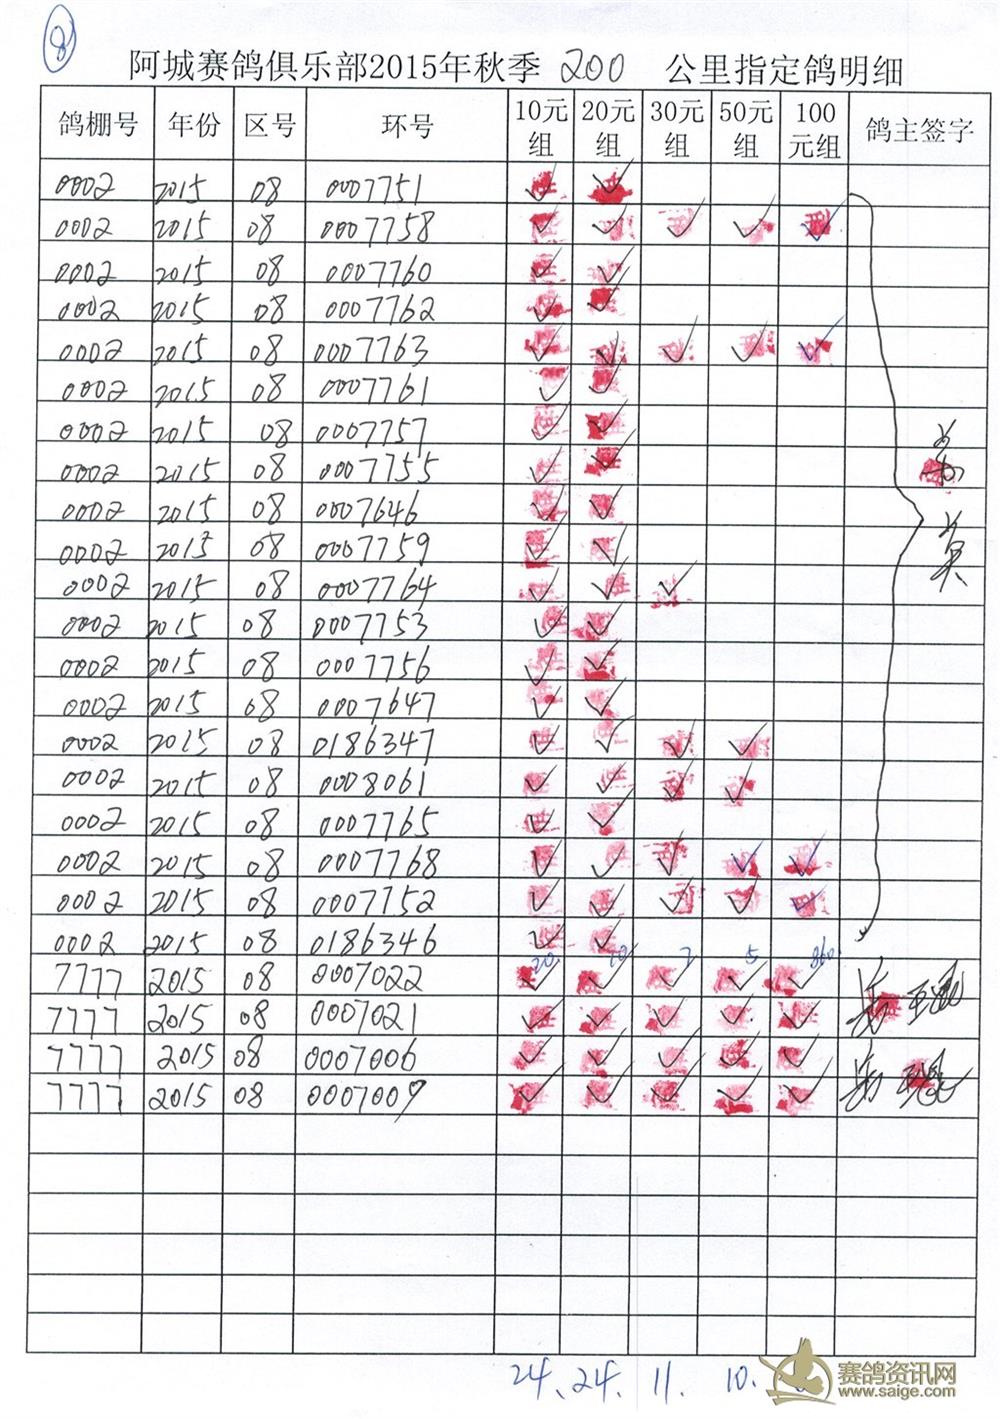 8
阿城赛鸽俱乐部2015年秋季 200 公里指定鸽明细
鸽棚号 年份 区号 环号 10元组 20元组 30元组 50元组 100元组 鸽主签字
0002 2015 08 0007751 ✓ ✓
0002 2015 08 0007758 ✓ ✓ ✓ ✓ ✓
0002 2015 08 0007760 ✓ ✓
0002 2015 08 0007762 ✓ ✓
0002 2015 08 0007763 ✓ ✓ ✓ ✓ ✓
0002 2015 08 0007761 ✓ ✓
0002 2015 08 0007757 ✓ ✓
0002 2015 08 0007755 ✓ ✓
0002 2015 08 0007646 ✓ ✓
0002 2015 08 0007759 ✓ ✓
0002 2015 08 0007764 ✓ ✓ ✓
0002 2015 08 0007753 ✓ ✓
0002 2015 08 0007756 ✓ ✓
0002 2015 08 0007647 ✓ ✓
0002 2015 08 0186347 ✓ ✓ ✓ ✓
0002 2015 08 0008061 ✓ ✓ ✓ ✓
0002 2015 08 0007765 ✓ ✓
0002 2015 08 0007768 ✓ ✓ ✓ ✓ ✓
0002 2015 08 0007752 ✓ ✓ ✓ ✓ ✓
0002 2015 08 0186346 ✓ ✓
20. 20. 7 5 860.
7777 2015 08 0007022 ✓ ✓ ✓ ✓ ✓
7777 2015 08 0007021 ✓ ✓ ✓ ✓ ✓
7777 2015 08 0007006 ✓ ✓ ✓ ✓ ✓
7777 2015 08 0007009 ✓ ✓ ✓ ✓ ✓
24. 24. 11. 10.
赛鸽资讯网
www.saige.com